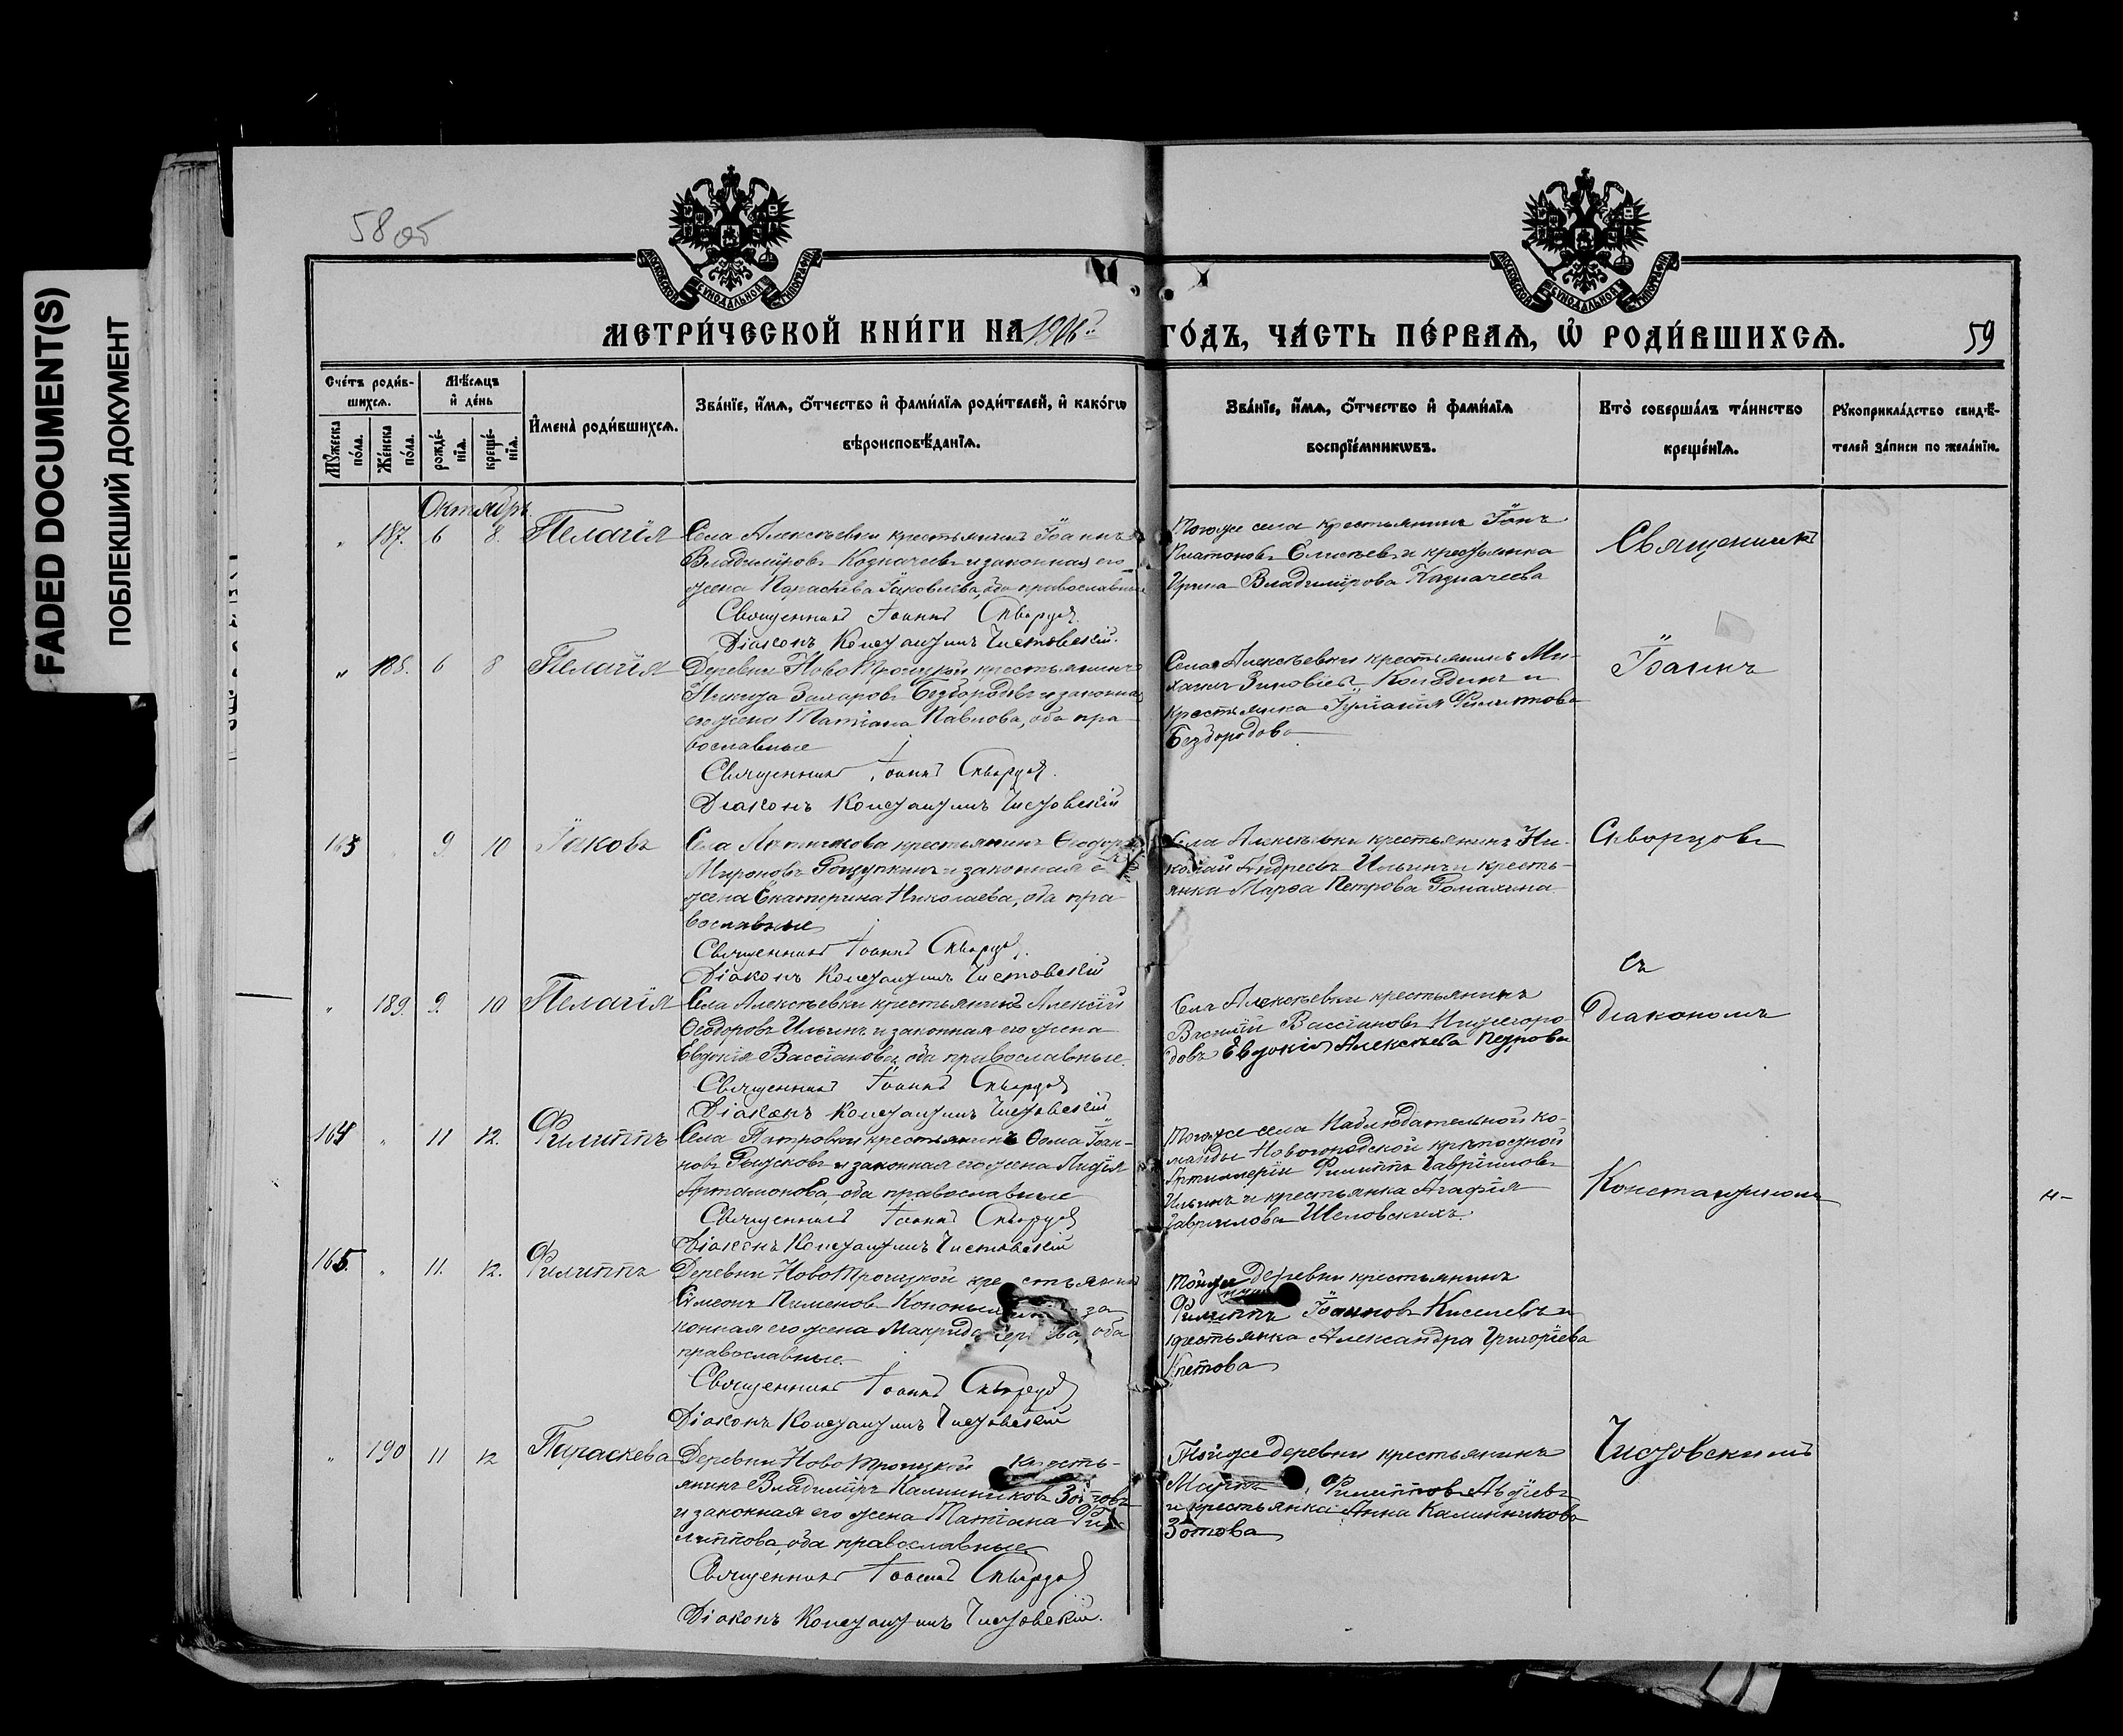 FADED DOCUMENT(S)
ПОБЛЕКШИЙ ДОКУМЕНТ
58 об
МОСКОВСКОЙ СѴНОДАЛЬНОЙ ТИПОГРАФІИ
МОСКОВСКОЙ СѴНОДАЛЬНОЙ ТИПОГРАФІИ
МЕТРИ́ЧЕСКОЙ КНИ́ГИ НА 1906 ГО́ДЪ, ЧА́СТЬ ПЕ́РВАѦ, Ѡ҆ РОДИ́ВШИХСѦ.
59
Сче́тъ роди́в-
шихсѧ.
Мѣ́сѧцъ
и҆ де́нь
Мꙋ́жеска
по́ла.
Же́нска
по́ла.
рожде́-
нїѧ.
креще́-
нїѧ.
И҆мена̀ роди́вшихсѧ.
Зва́нїе, и҆́мѧ, ѻ҆́тчество и҆ фамѝлїѧ роди́телей, и҆ како́гѡ
вѣроисповѣ́данїѧ.
Зва́нїе, и҆́мѧ, ѻ҆́тчество и҆ фамѝлїѧ
воспрїе́мникѡвъ.
Кто̀ соверша́лъ та́инство
креще́нїѧ.
Рꙋкоприкла́дство свидѣ́-
телей за́писи по жела́нїю.
Октябрь.
" 187. 6 8. Пелагія
Села Алексѣевки крестьянинъ Іоаннъ
Владиміровъ Козначеевъ и законная его
жена Параскева Іаковлева, оба православные
Священникъ Іоаннъ Скворцов
Діаконъ Константинъ Чистовскій.
Тогоже села крестьянинъ Іоаннъ
Платоновъ Елисѣевъ и крестьянка
Ирина Владимірова Казначеева
Священникъ
" 188. 6 8 Пелагія
Деревни Ново Троицкой крестьянинъ
Никита Захаровъ Безбородовъ и законная
его жена Татіана Павлова, оба пра-
вославные
Священникъ Іоаннъ Скворцов.
Діаконъ Константинъ Чистовскій
Села Алексѣевки крестьянинъ Ми-
хаилъ Зиновіевъ и
крестьянка Іуліанія Филиппова
Безбородова
Іоаннъ
163 " 9 10 Іаковъ
Села крестьянинъ Ѳеодоръ
Мироновъ и законная его
жена Екатерина Николаева, оба пра-
вославные
Священникъ Іоаннъ Скворцов.
Діаконъ Константинъ Чистовскій
Села Алексѣевки крестьянинъ Ни-
колай Андреевъ Ильинъ и кресть-
янка Марѳа Петрова
Скворцовъ
" 189. 9. 10 Пелагія
Села Алексѣевки крестьянинъ Алексій
Ѳеодоровъ Ильинъ и законная его жена
Евдокія Вассіанова, оба православные.
Священникъ Іоаннъ Скворцов
Діаконъ Константинъ Чистовскій
Села Алексѣевки крестьянинъ
Василій Вассіановъ Нижегоро-
довъ Евдокія Алексѣева Петрова
съ
Діакономъ
164 " 11 12. Филиппъ
Села Патровки крестьянинъ Ѳома Іоан-
новъ Рыжковъ и законная его жена Лидія
Артамонова оба православные
Священникъ Іоаннъ Скворцов
Діаконъ Константинъ Чистовскій
Тогоже села Наблюдательной ко-
манды Новогородской крѣпостной
Артиллеріи Филиппъ Гавріиловъ
Ильинъ и крестьянка Агафія
Гаврилова Шеловскихъ.
Константиномъ
165. " 11. 12. Филиппъ
Деревни Ново Троицкой крестьянинъ
Сѵмеонъ Пименовъ и за-
конная его жена Макрида оба
православные.
Священникъ Іоаннъ Скворцов
Діаконъ Константинъ Чистовскій
Тойже деревни крестьянинъ
Филиппъ Іоанновъ Киселевъ и
крестьянка Александра Григоріева
" 190 11 12 Параскева
Деревни Ново Троицкой кресть-
янинъ Владиміръ Калинниковъ Зотовъ
и законная его жена Татіана Фи-
липпова, оба православные
Священникъ Іоаннъ Скворцов
Діаконъ Константинъ Чистовскій.
Тойже деревни крестьянинъ
Филипповъ Авдіевъ
и крестьянка Анна Калинникова
Зотова
Чистовскимъ